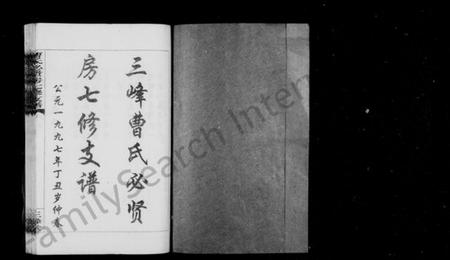 三峰曹氏必贤
房七修支谱
公元一九九七年丁丑岁仲春
FamilySearch Intern